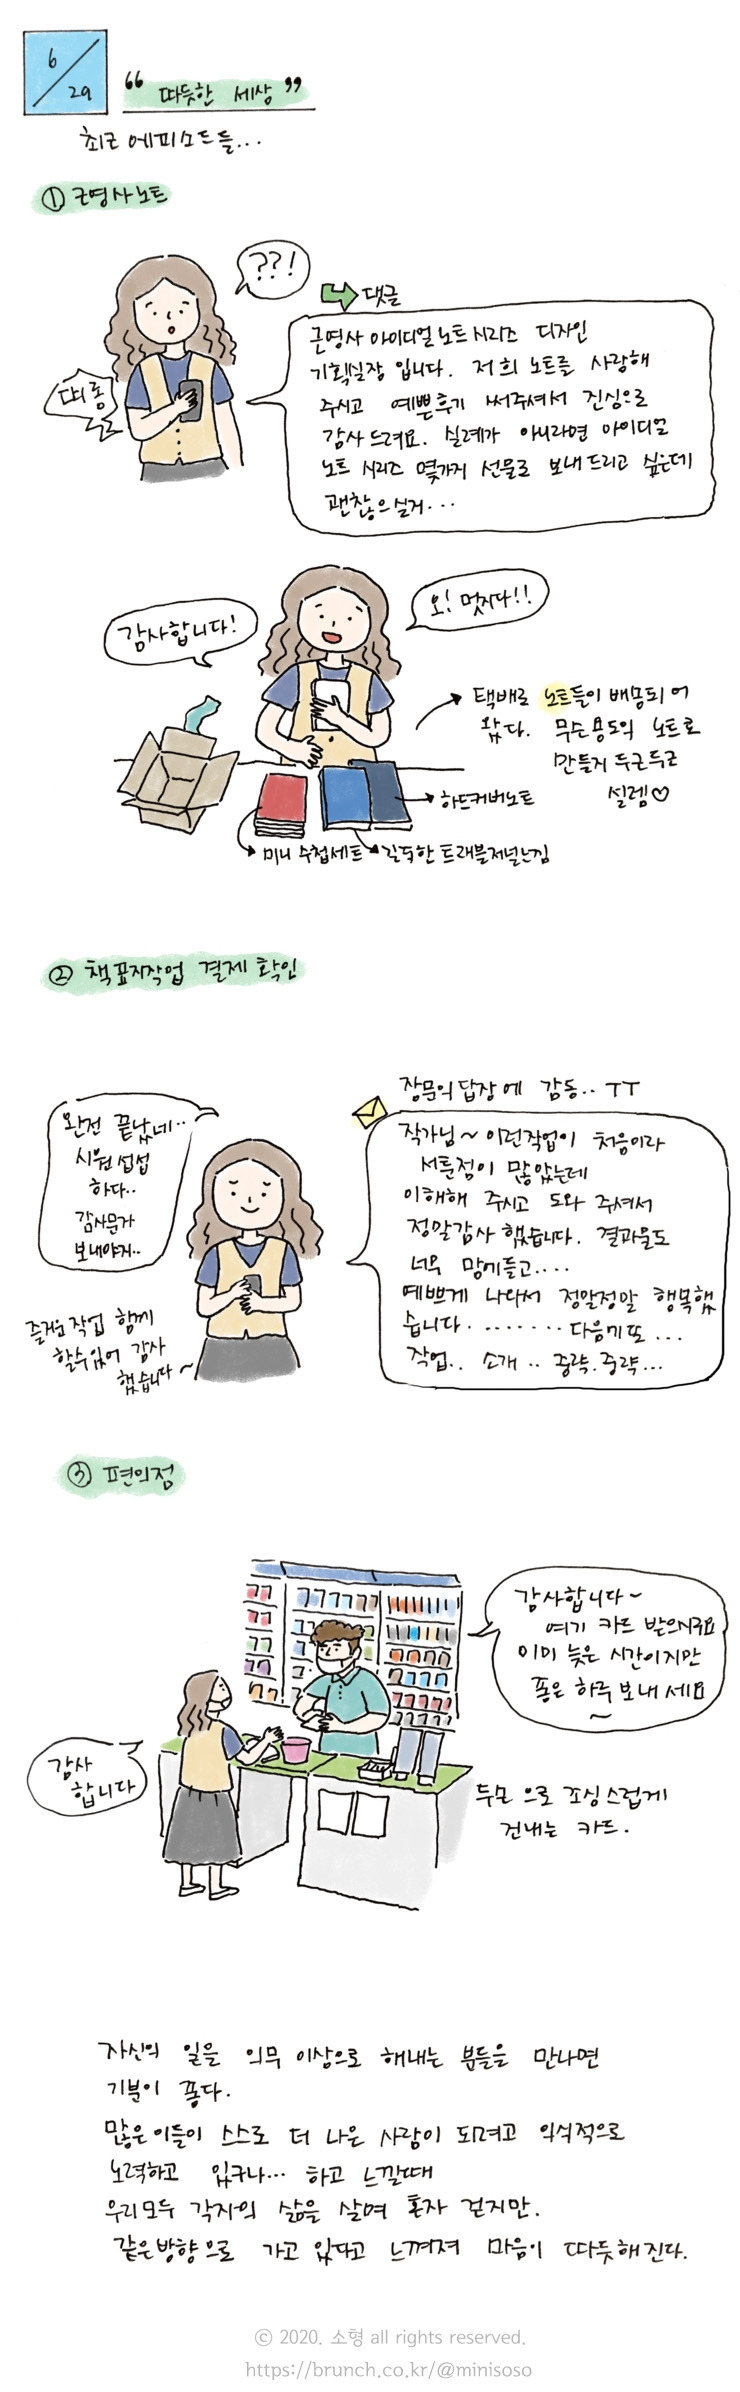 6/29
“따뜻한 세상”
최근 에피소드들...
① 근영사노트
??!
댓글
띠롱
근영사 아이디얼노트시리즈 디자인
기획실장 입니다. 저희 노트를 사랑해
주시고 예쁜후기 써주셔서 진심으로
감사드려요. 실례가 아니라면 아이디얼
노트 시리즈 몇가지 선물로 보내드리고 싶은데
괜찮으실지...
감사합니다!
오! 멋지다!!
택배로 노트들이 배송되어
왔다. 무슨용도의 노트로
만들지 두근두근
설렘♡
하드커버노트
미니 수첩세트
길쭉한 트래블저널느낌
② 책표지작업 결제 확인
장문의답장에 감동.. ㅜㅜ
완전 끝났네..
시원섭섭
하다..
감사문자
보내야지..
작가님~ 이런작업이 처음이라
서툰점이 많았는데
이해해 주시고 도와 주셔서
정말감사했습니다. 결과물도
너무 맘에들고....
예쁘게 나와서 정말정말 행복했
습니다........ 다음에또 ...
작업.. 소개.. 중략.중략...
즐거운작업 함께
할수있어 감사
했습니다~
③ 편의점
감사합니다~
여기 카드 받으시구요
이미 늦은 시간이지만
좋은 하루 보내세요
~
감사
합니다
두손으로 조심스럽게
건내는 카드.
자신의 일을 의무 이상으로 해내는 분들을 만나면
기분이 좋다.
많은이들이 스스로 더 나은 사람이 되려고 의식적으로
노력하고 있구나... 하고 느낄때
우리모두 각자의 삶을 살며 혼자 걷지만.
같은방향으로 가고 있다고 느껴져 마음이 따뜻해진다.
© 2020. 소형 all rights reserved.
https://brunch.co.kr/@minisoso